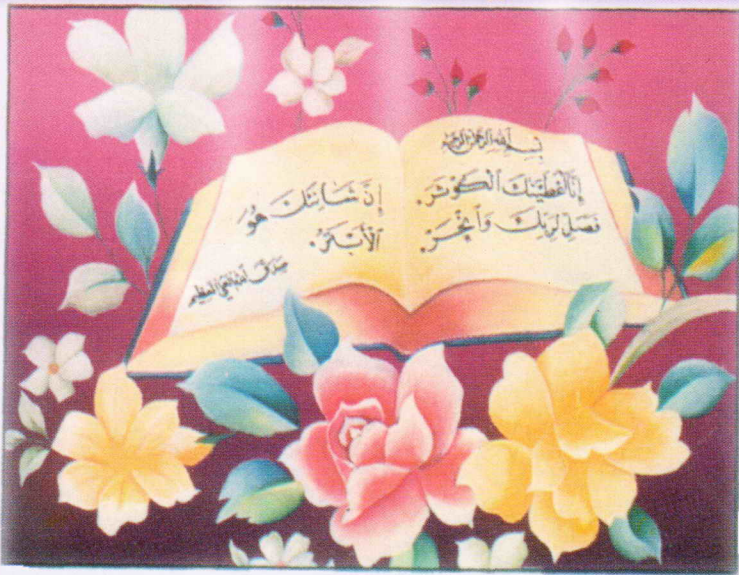 بسم الله الرحمن الرحيم
إِنَّا أَعْطَيْنَكَ ٱلْكَوْثَرَ.
فَصَلِّ لِرَبِّكَ وَٱنْحَرْ.
إِنَّ شَانِئَكَ هُوَ
ٱلْأَبْتَرُ.
صدق الله العلي العظيم